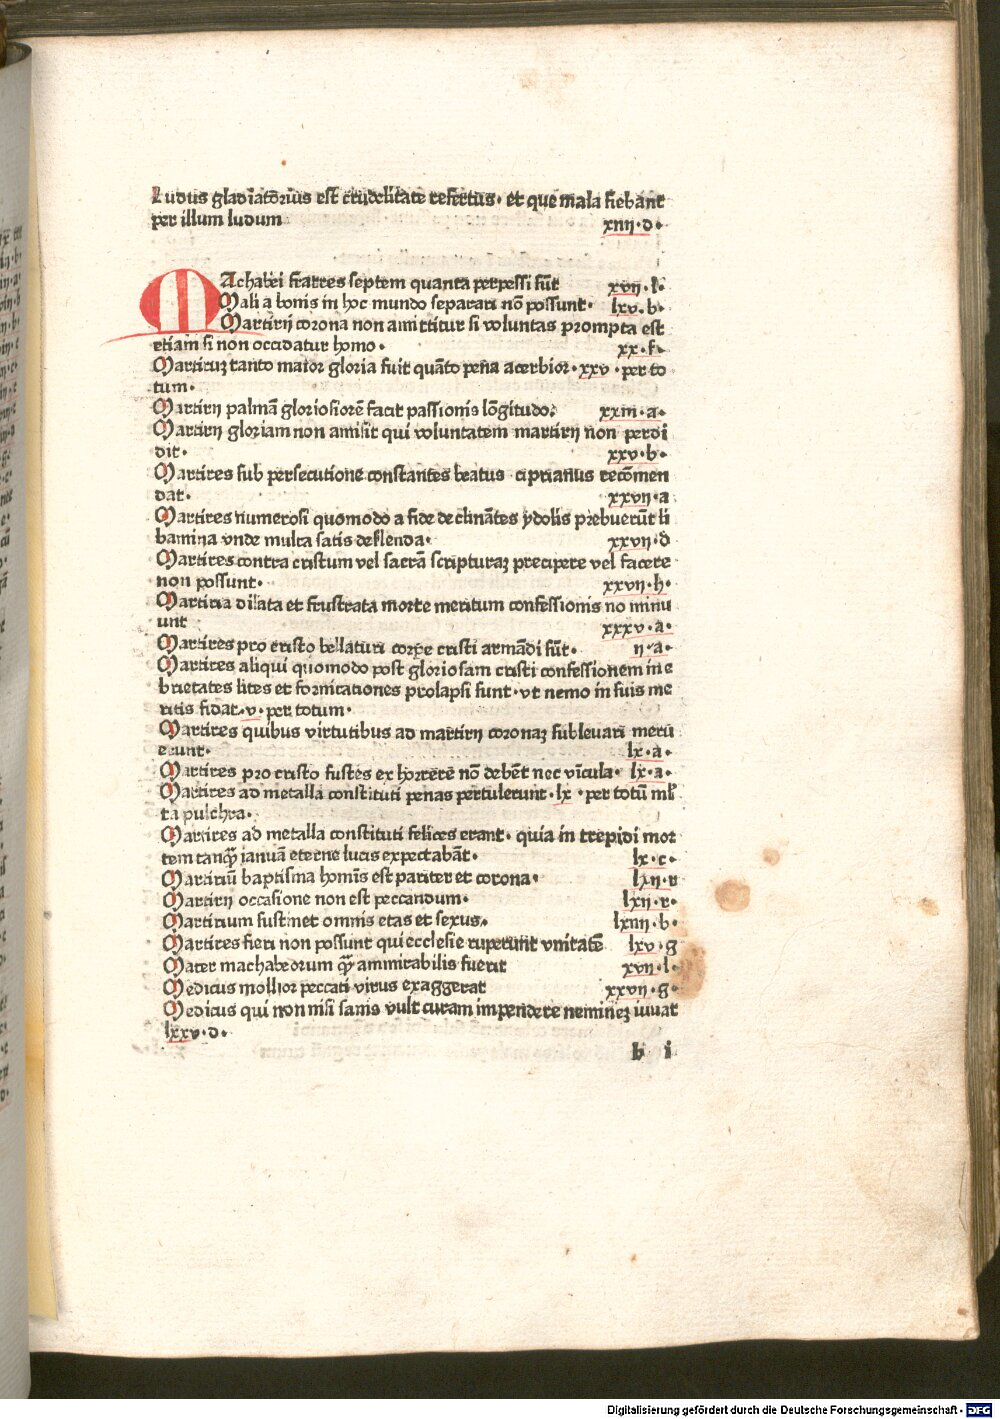 Ludus gladiatorius est crudelitate refertus· et que mala fiebant
per illum ludum xiiij·d·
MAchabei fratres septem quanta perpessi sūt xvij·l·
Mali a bonis in hoc mundo separari nō possunt· lxv·b·
Martirij corona non amittitur si voluntas prompta est
etiam si non occidatur homo· xx·f·
Martiruꝫ tanto maior gloria fuit quāto pena acerbior·xxv·per to
tum·
Martirij palmā gloriosiorē facit passionis lōgitudo· xxiij·a·
Martirij gloriam non amisit qui voluntatem martirij non perdi
dit· xxv·b·
Martires sub persecutione constantes beatus ciprianus recōmen
dat· xxvij·a
Martires numerosi quomodo a fide declinātes ydolis prebuerūt li
bamina vnde multa satis deflenda· xxvij·d
Martires contra cristum vel sacrā scripturaꝫ precipere vel facere
non possunt· xxvij·h·
Martiria dilata et frustrata morte meritum confessionis no minu
unt xxxv·a·
Martires pro cristo bellaturi corpe cristi armādi sūt· ij·a·
Martires aliqui quomodo post gloriosam cristi confessionem in e
brietates lites et fornicationes prolapsi sunt·vt nemo in suis me
ritis fidat·v·per totum·
Martires quibus virtutibus ad martirij coronaꝫ subleuari meru
erunt· lx·a·
Martires pro cristo fustes ex horrere nō debēt nec vīcula· lx·a·
Martires ad metalla constituti penas pertulerunt·lx·per totū ml
ta pulchra·
Martires ad metalla constituti felices erant· quia in trepidi mor
tem tanqꝫ ianuā eterne lucis expectabāt· lx·c·
Martiriū baptisma homīs est pariter et corona· lxij·r
Martirij occasione non est peccandum· lxij·r·
Martirium sustinet omnis etas et sexus· lxiiij·b·
Martires fieri non possunt qui ecclesie ruperunt vnitatē lxv·g
Mater machabeorum qꝫ ammirabilis fuerit xvij·l·
Medicus mollior peccati virus exaggerat xxvij·g·
Medicus qui non nisi sanis vult curam impendere nemineꝫ iuuat
lxxv·d·
b i
Digitalisierung gefördert durch die Deutsche Forschungsgemeinschaft - DFG